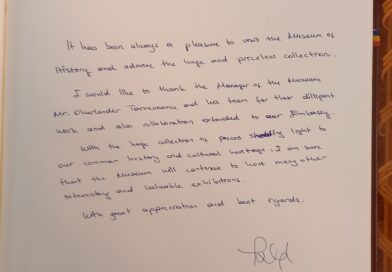 It has been always a pleasure to visit the Museum of
History and admire the huge and priceless collection.
I would like to thank the Manager of the Museum
Mr. Oberländer Tarnoveanu and his team for their diligent
work and also collaboration extended to our Embassy.
With the huge collection of pieces shedding light to
our common history and cultural heritage, I am sure
that the Museum will continue to host many other
interesting and valuable exhibitions.
With great appreciation and best regards.